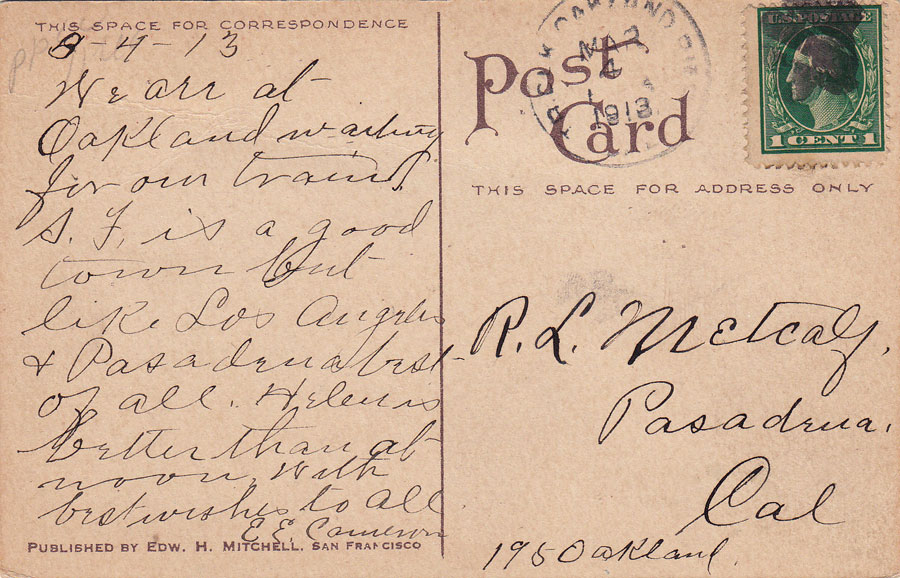 THIS SPACE FOR CORRESPONDENCE
3-4-13
We are at
Oakland waiting
for our train.
S. F. is a good
town but
like Los Angeles
& Pasadena best
of all. Helen is
better than at
noon. With
best wishes to all
E. E. Cameron
PUBLISHED BY EDW. H. MITCHELL, SAN FRANCISCO
OAKLAND
MAR
4
1913
Post
Card
U.S. POSTAGE
1 CENT 1
THIS SPACE FOR ADDRESS ONLY
R. L. Metcalf.
Pasadena.
Cal
195 Oakland